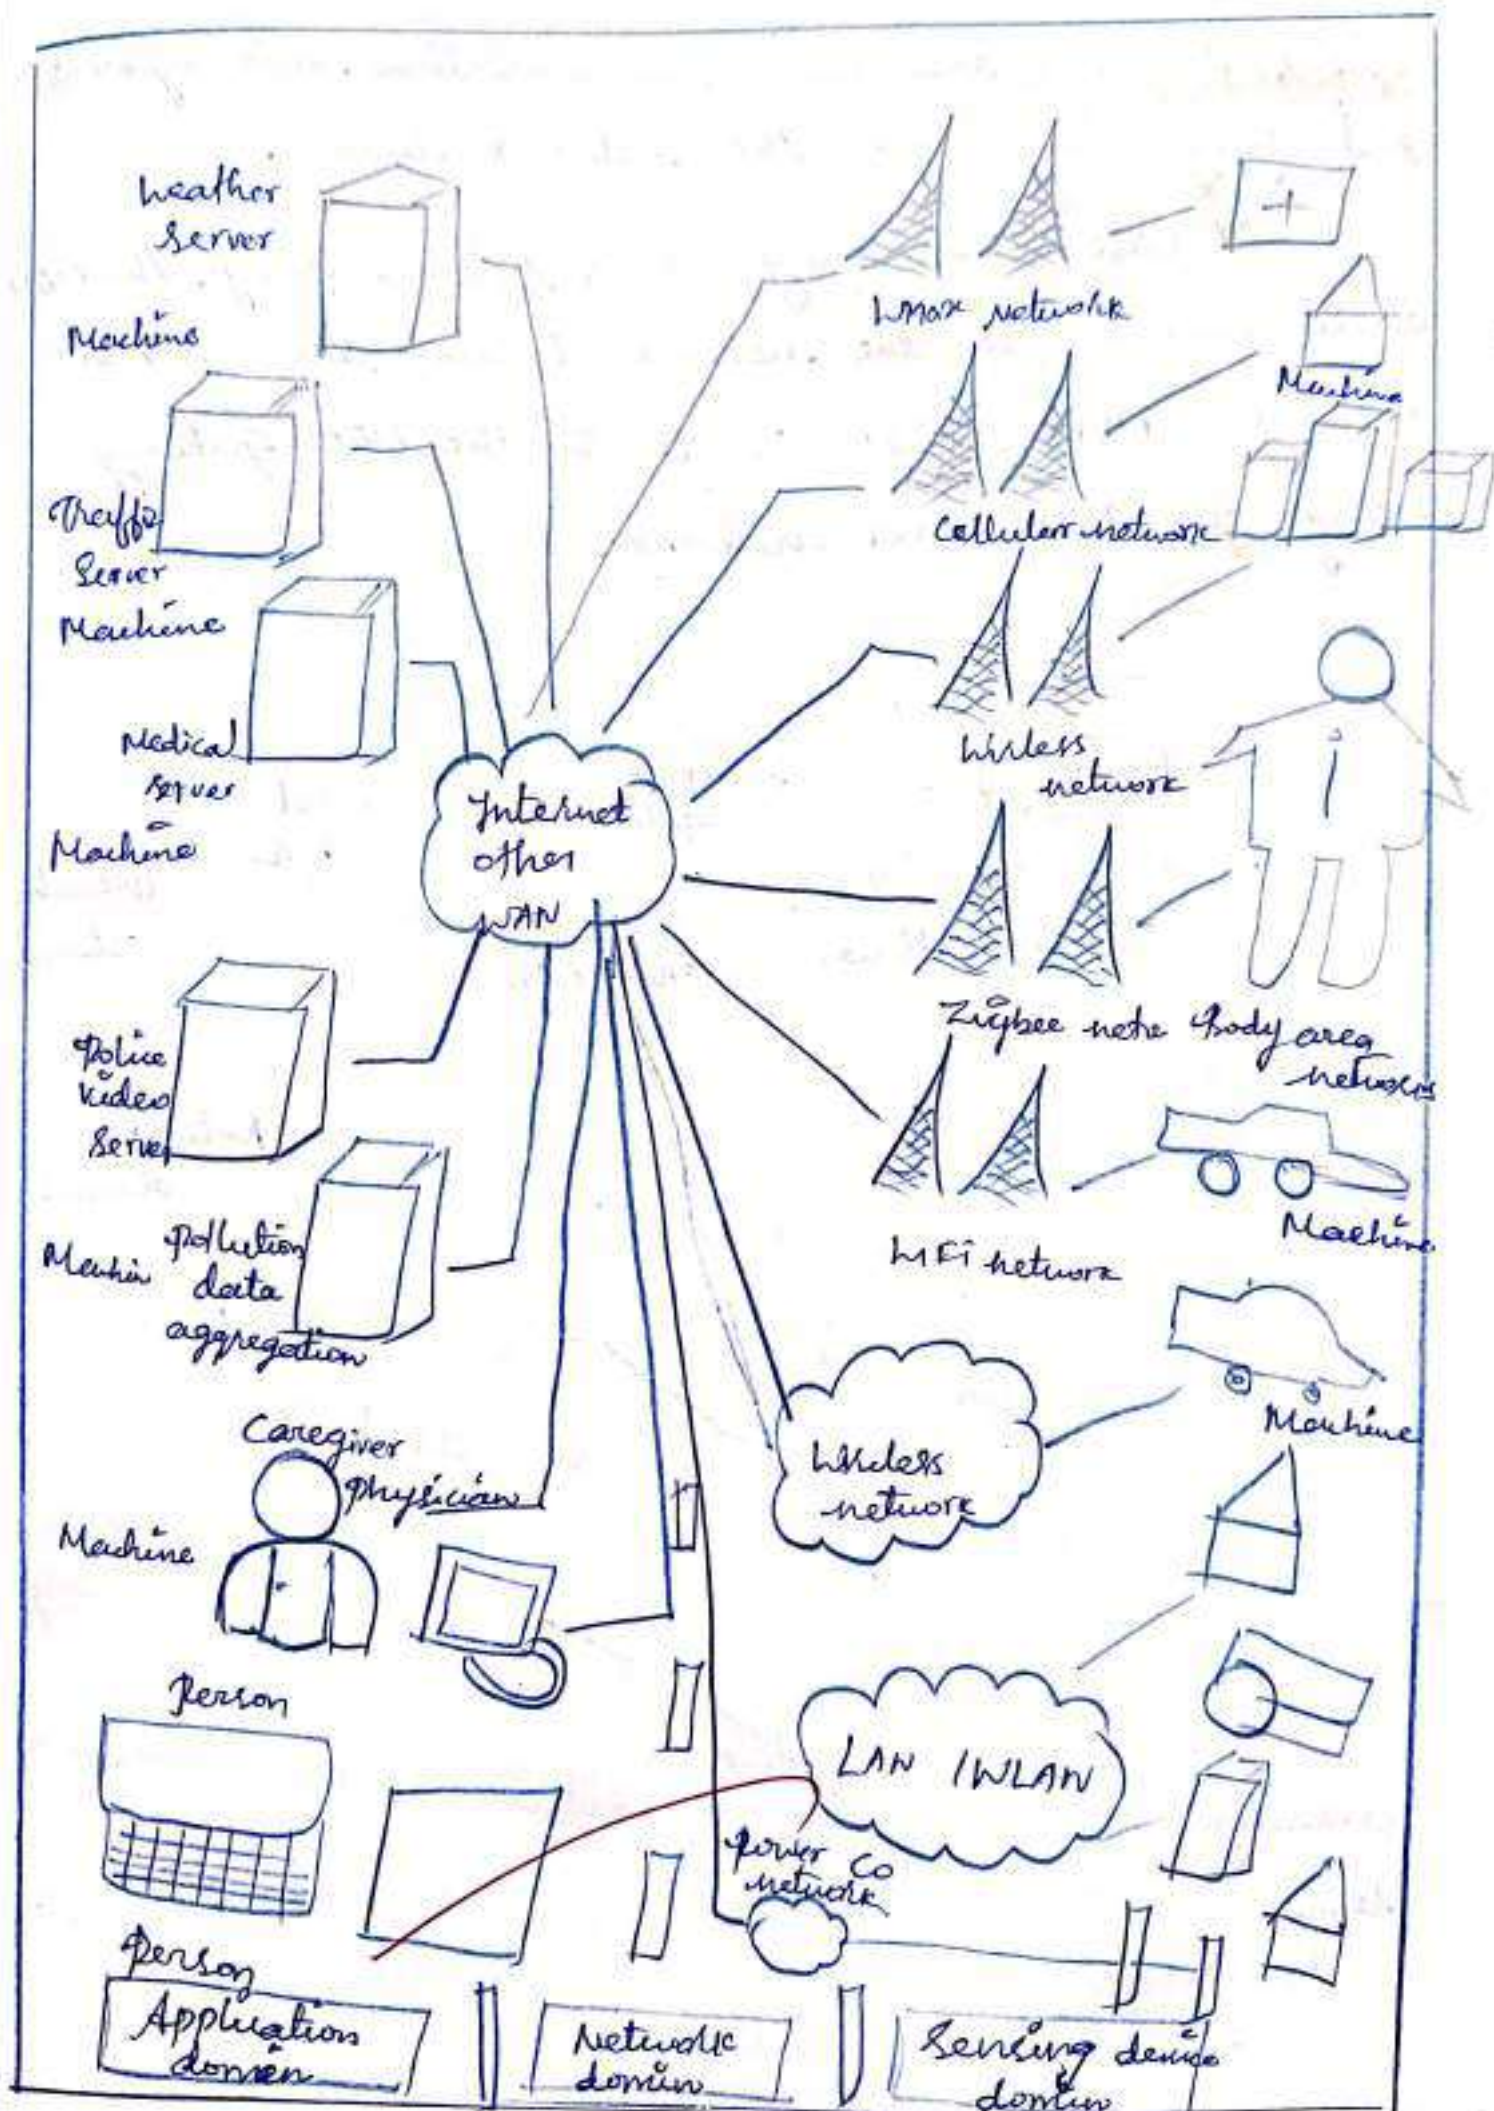 Weather
Server
Machine
Traffic
Server
Machine
Medical
server
Machine
Police
Video
Server
Machin
Pollution
data
aggregation
Caregiver
physician
Machine
Person
Person
Internet
other
WAN
Wmax Network
Machine
Cellular network
Wirless
network
Zigbee netw
Body area
networks
WiFi network
Machine
Machine
Wireless
network
LAN IWLAN
Power Co
network
Application
domen
Network
domin
Sensing device
domin